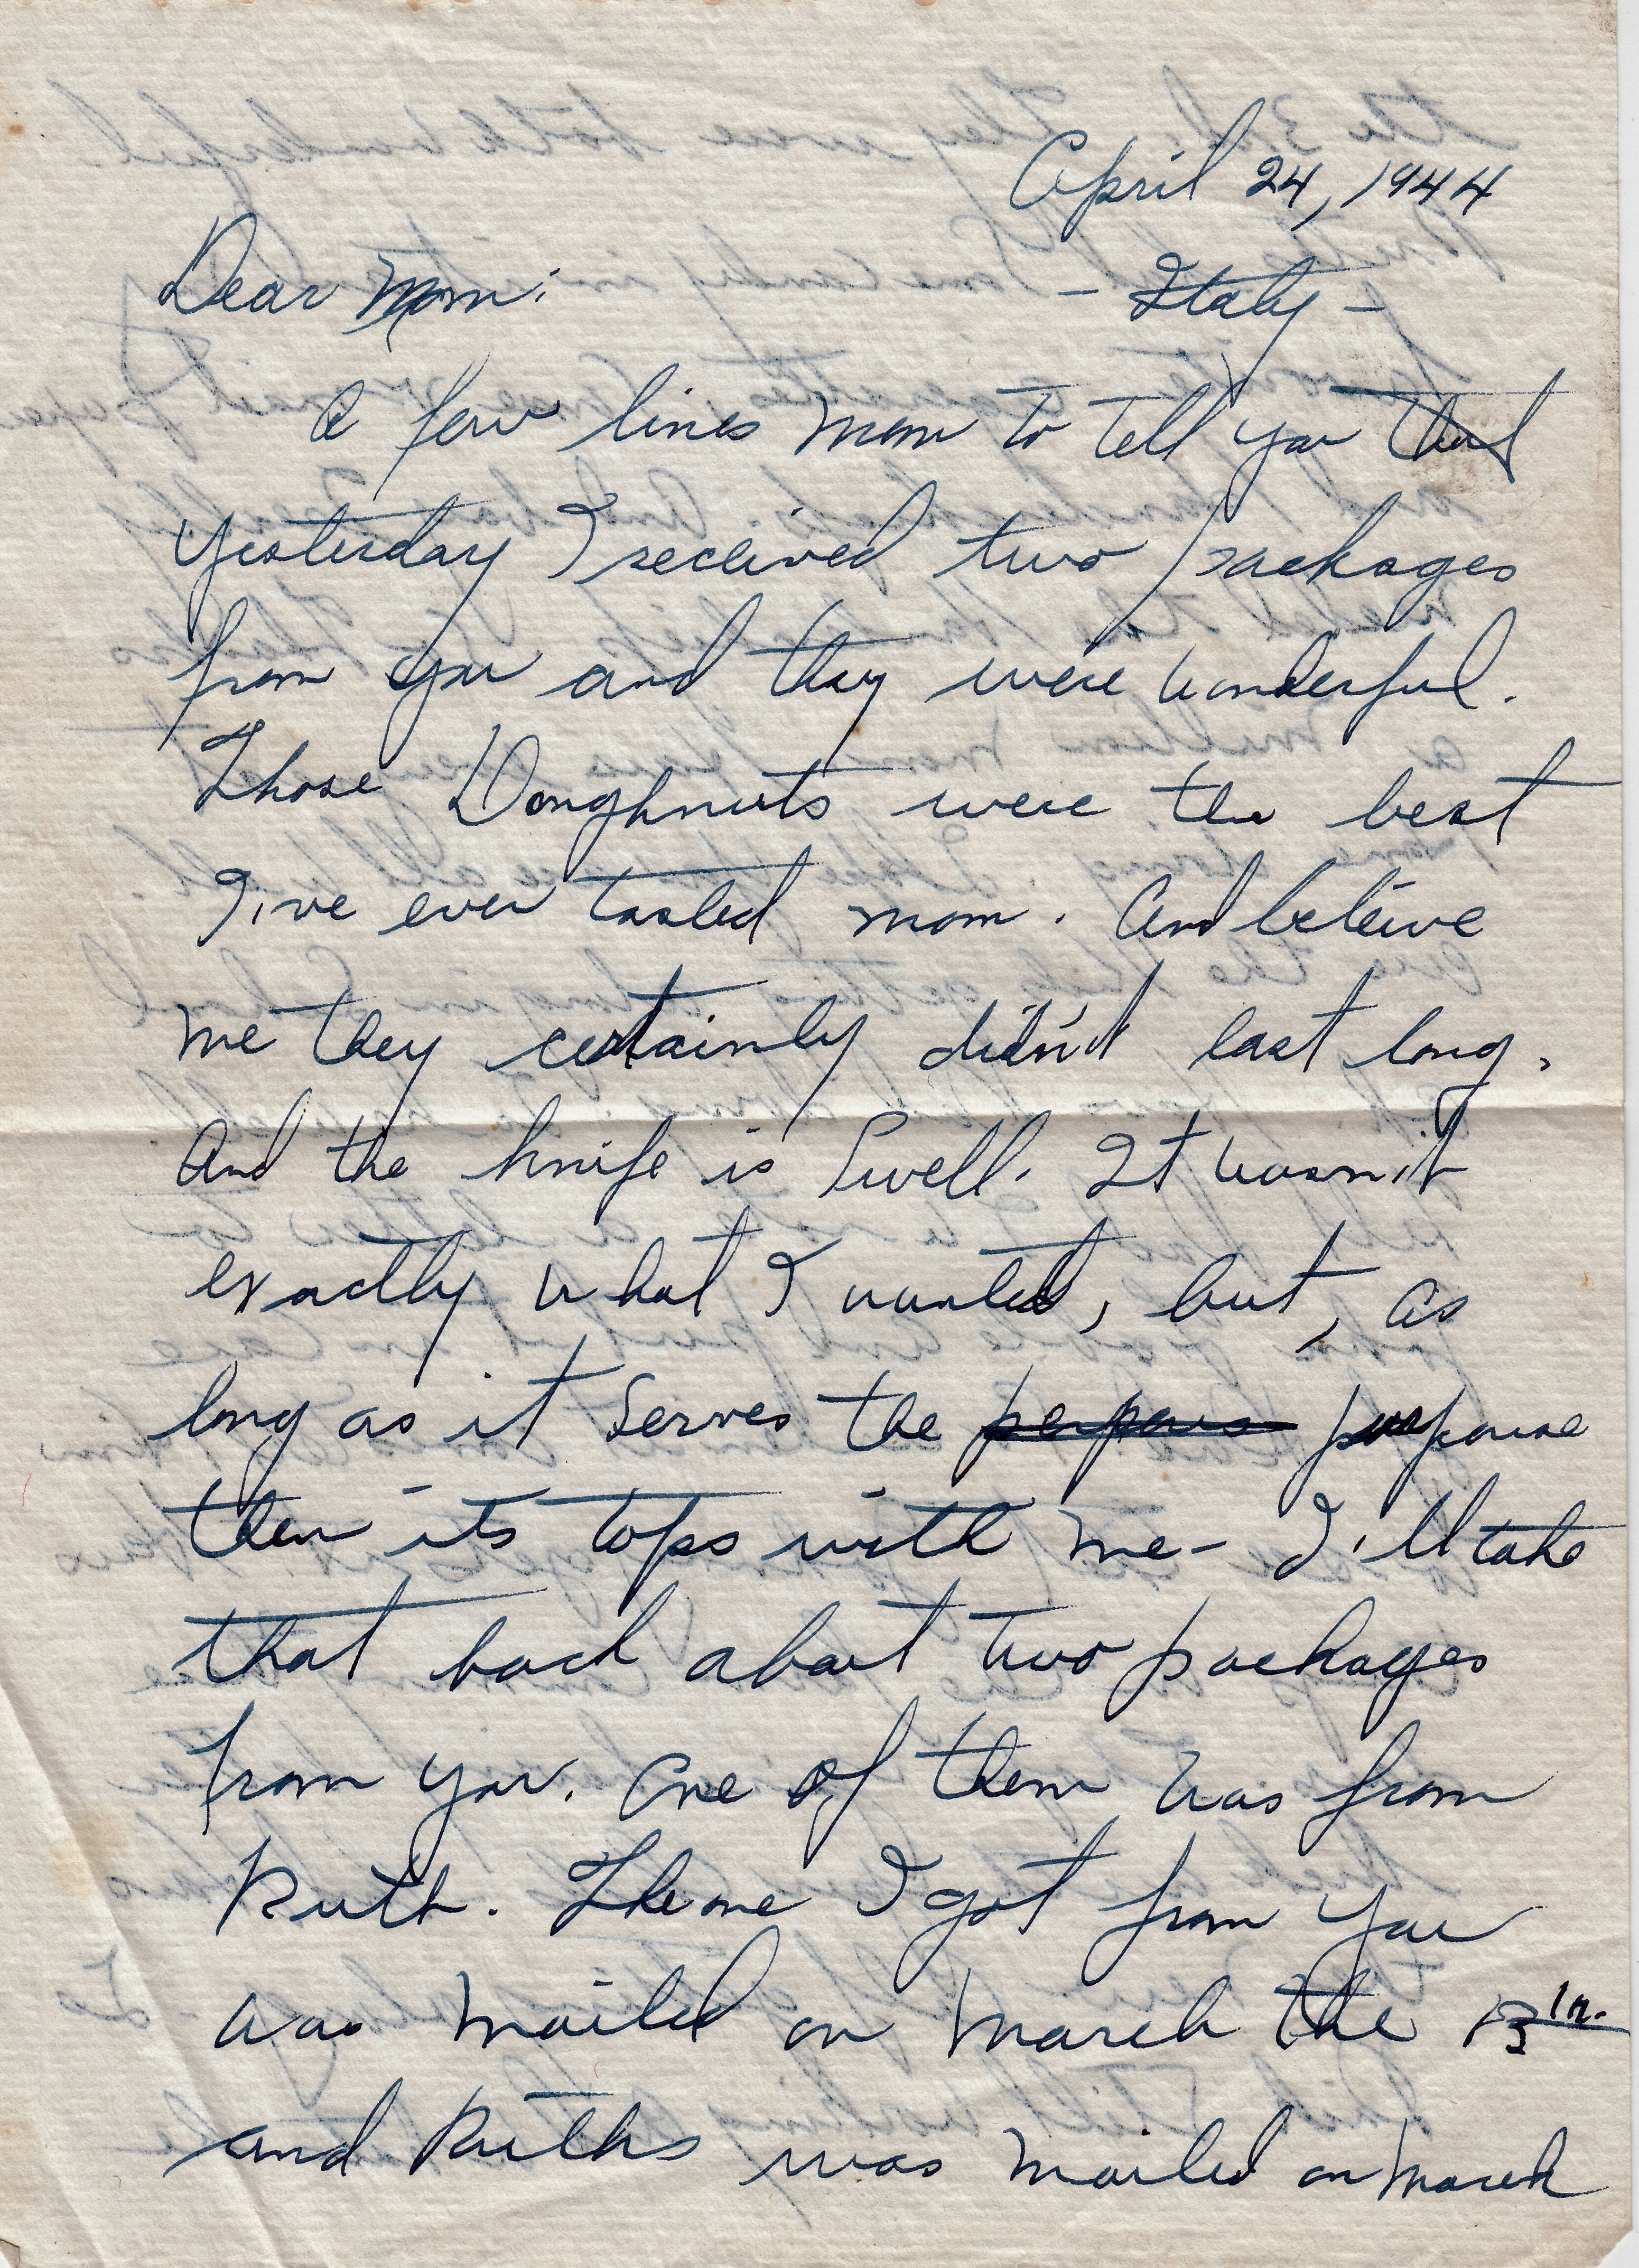 April 24, 1944
Dear Mom: - Italy -
A few lines mom to tell you that
yesterday I received two packages
from you and they were wonderful.
Those Doughnuts were the best
I've ever tasted mom. And beleive
me they certainly didn't last long.
And the knife is Swell. It wasn't
exactly what I wanted, but, as
long as it serves the perpous purpouse
then its tops with me - I'll take
that back about two packages
from you. One of them was from
Ruth. The one I got from you
was mailed on March the 13th.
and Ruths was mailed on March